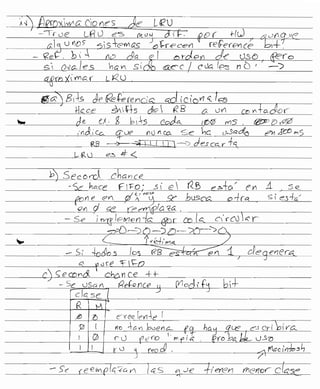 iv) Aproximaciones de LRU
- True LRU es muy dif. por HW, aunque
algunos sistemas ofrecen reference bit
- Ref. bit no da el orden de uso, pero
si cuales han sido acc / cuales no →
aproximar LRU.
a) Bits de Referencia adicionales
Hace shifts del RB a un contador
de 8 bits cada 100 ms,
indica que nunca se ha usado en 800ms
RB → descarta
LRU es # <
b) Second chance
- Se hace FIFO; si el RB está en 1, se
pone en 0 y se busca otra, si está
en 0 se reemplaza.
- Se implementa por cola circular
→0→0→0→0→0
↑víctima
- Si todos los RB están en 1, degenera
a pure FIFO
c) Second chance ++
- Se usan Refence y Modify bit
clase
R M
0 0 excelente!
0 1 no tan buena pq hay que escribirla
1 0 ru pero limpia. Probable uso
1 1 ru y mod. Macintosh
- Se reemplazan las que tienen menor clase